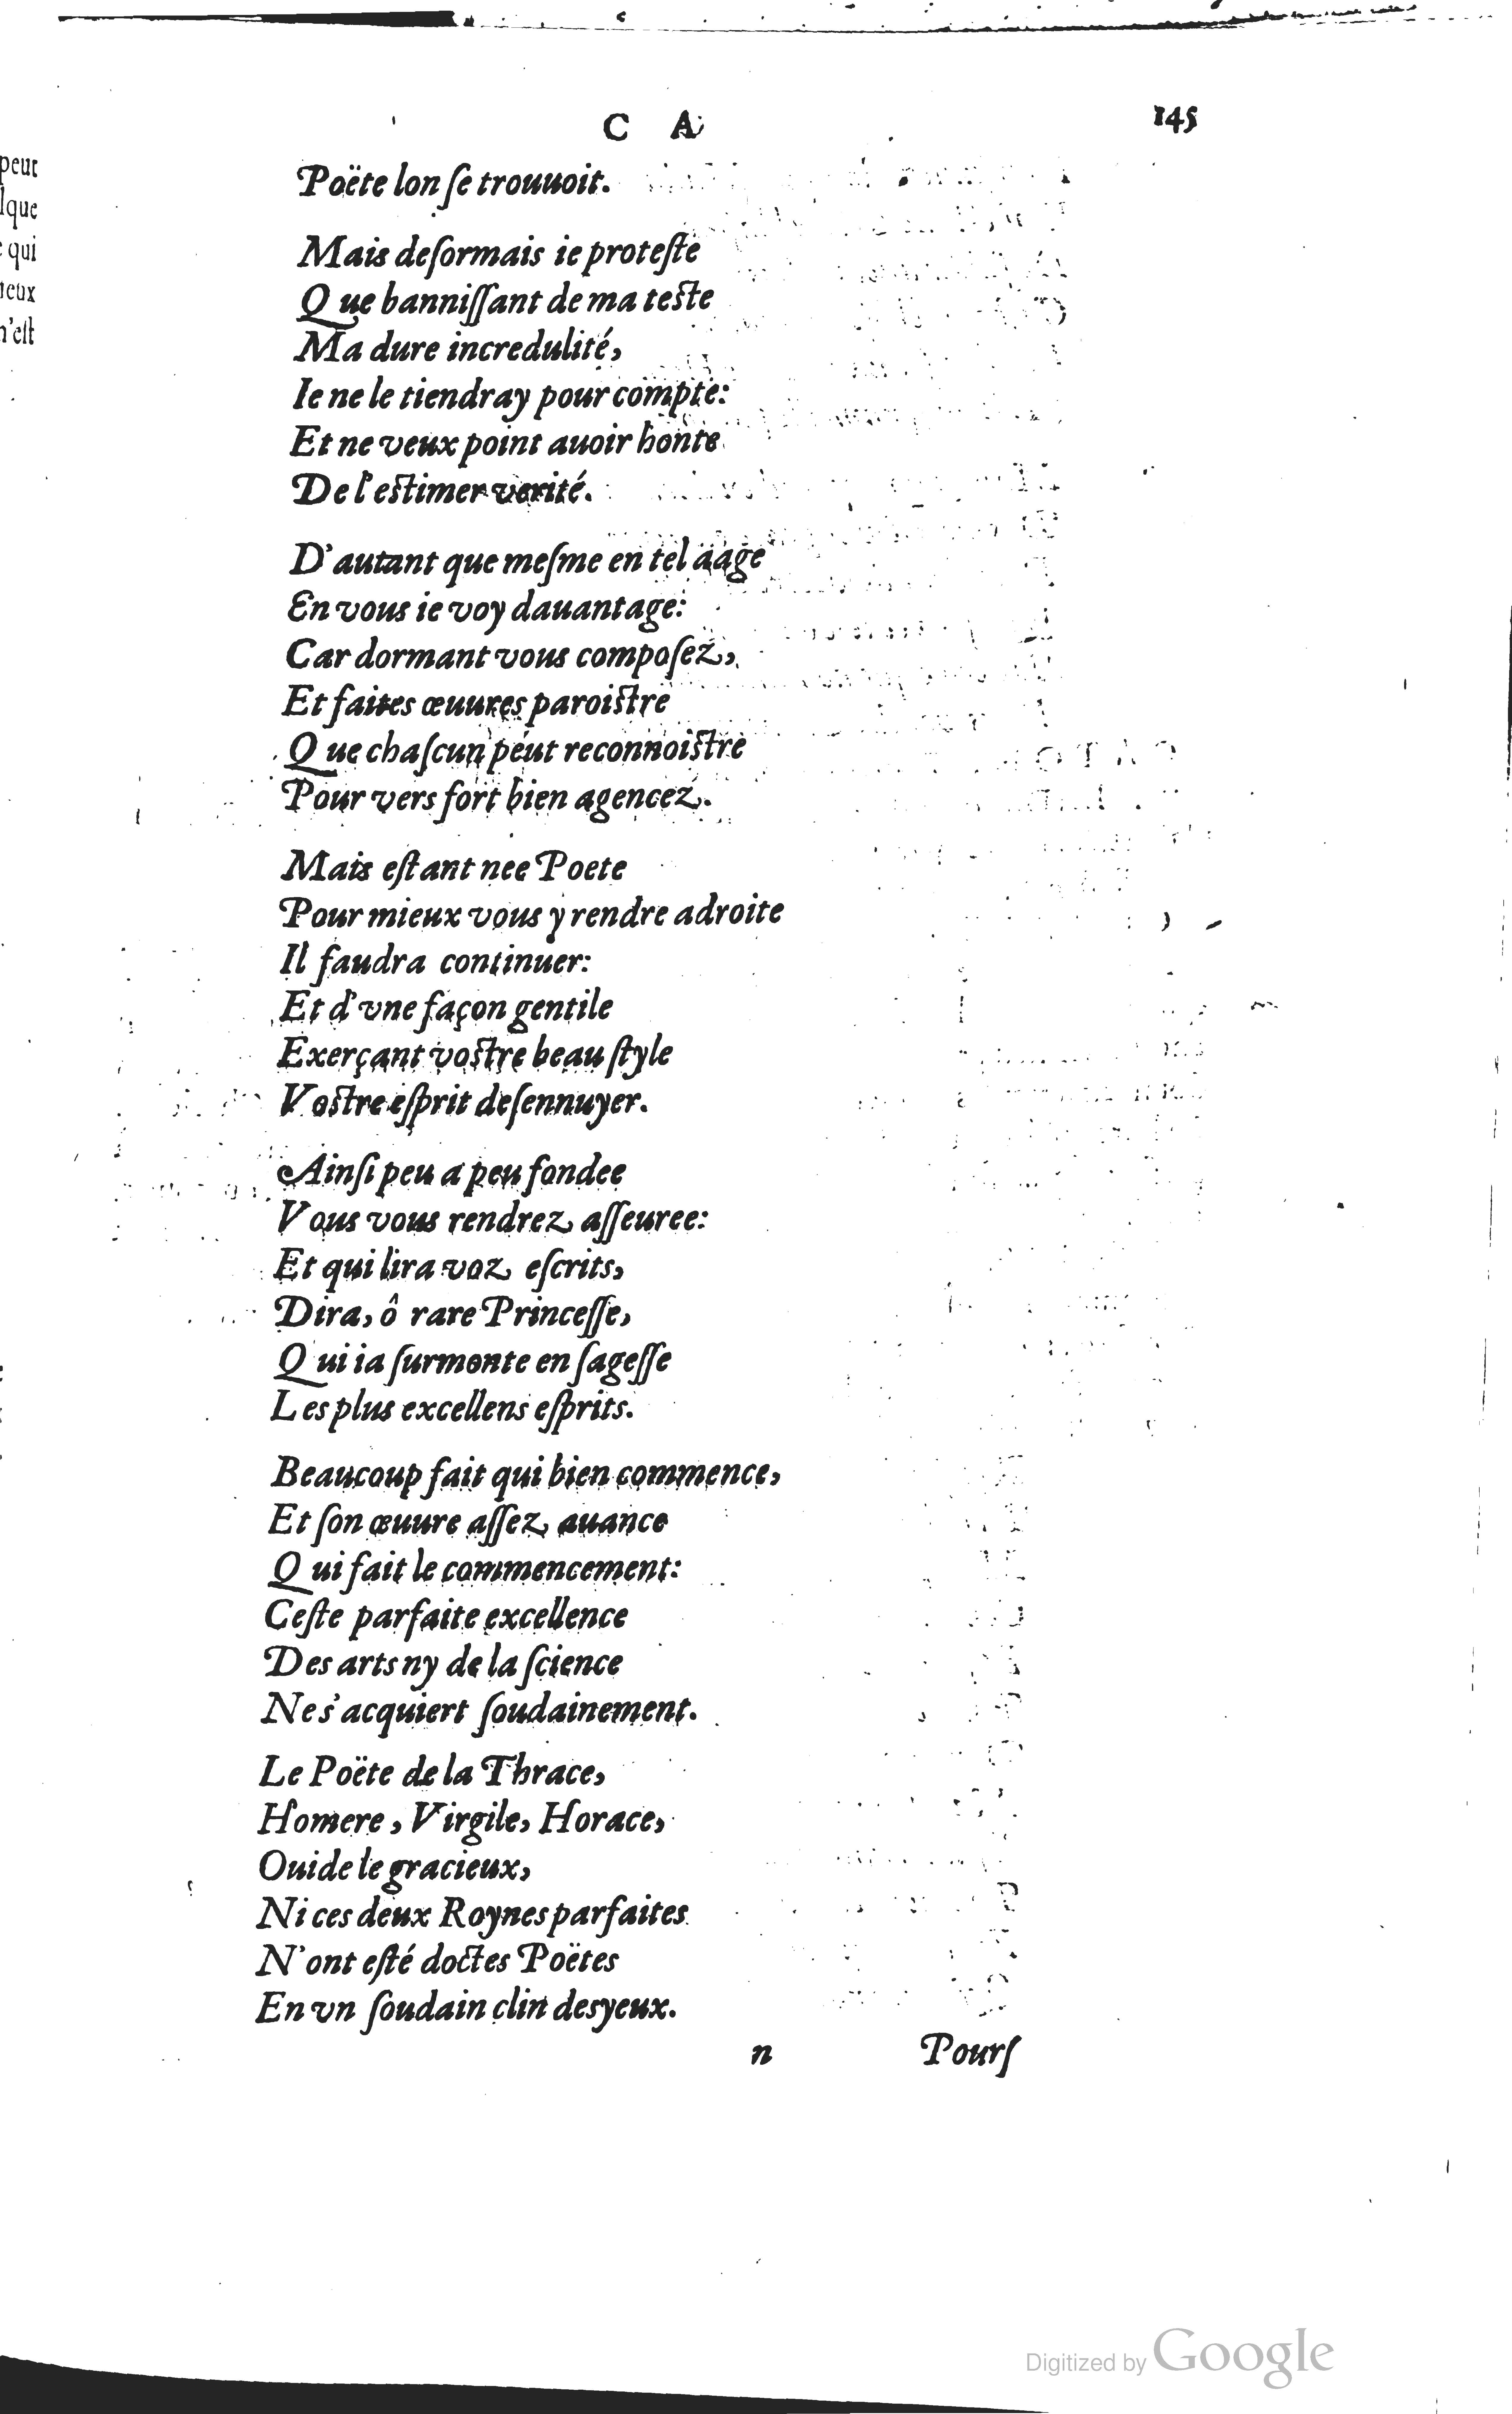 C A 145
Poëte lon ſe trouuoit.
Mais deſormais ie proteſte
Que banniſſant de ma teſte
Ma dure incredulité,
Ie ne le tiendray pour compte:
Et ne veux point auoir honte
De l'eſtimer verité.
D'autant que meſme en tel aage
En vous ie voy dauantage:
Car dormant vous compoſez,
Et faites œuures paroiſtre
Que chaſcun peut reconnoiſtre
Pour vers fort bien agencez.
Mais eſtant nee Poete
Pour mieux vous y rendre adroite
Il faudra continuer:
Et d'vne façon gentile
Exerçant voſtre beau ſtyle
Voſtre eſprit deſennuyer.
Ainſi peu a peu fondee
Vous vous rendrez aſſeuree:
Et qui lira voz eſcrits,
Dira, ô rare Princeſſe,
Qui ia ſurmonte en ſageſſe
Les plus excellens eſprits.
Beaucoup fait qui bien commence,
Et ſon œuure aſſez auance
Qui fait le commencement:
Ceſte parfaite excellence
Des arts ny de la ſcience
Ne s'acquiert ſoudainement.
Le Poëte de la Thrace,
Homere, Virgile, Horace,
Ouide le gracieux,
Ni ces deux Roynes parfaites
N'ont eſté doctes Poëtes
En vn ſoudain clin des yeux.
n Pourſ
peut
lque
qui
ieux
n'eſt
Digitized by Google